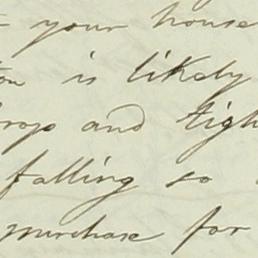 your house
is likely
and
falling so
purchase for